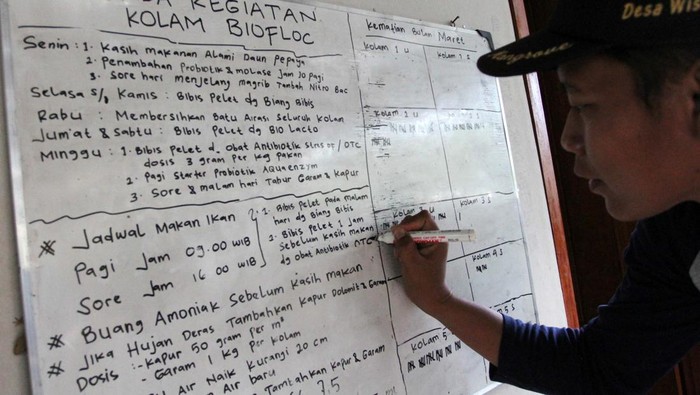 KEGIATAN
KOLAM BIOFLOC
Senin : 1. Kasih makanan Alami Daun Pepaya
2. Penambahan Probiotik & molase Jam 10 pagi
3. Sore hari menjelang magrib Tambah Nitro Bac
Selasa s/d Kamis : Bibis Pelet dg Biang Bibis
Rabu : Membersihkan Batu Airasi Seluruh Kolam
Jum'at & Sabtu : Bibis Pelet dg BIO Lacto
Minggu : 1. Bibis Pelet d. obat Antibiotik / OTC
dosis 3 gram Per kg pakan
2. Pagi Starter Probiotik Aquaenzym
3. Sore & malam hari Tabur Garam & Kapur
* Jadwal Makan Ikan
Pagi Jam 09.00 WIB
Sore Jam 16 00 WIB
1. Bibis Pelet pada malam
hari dg Biang Bibis
2. Bibis Pelet 1 Jam
Sebelum Kasih makan
dg obat Antibiotik OTC
* Buang Amoniak Sebelum Kasih makan
* Jika Hujan Deras Tambahkan Kapur Dolomit & Garam
Dosis :- Kapur 50 gram per m³
- Garam 1 Kg per Kolam
Air Naik Kurangi 20 cm
Air baru
Tambahkan Kapur & Garam
7.5
Kematian Bulan Maret
Kolam 1 U
Kolam 1 S
Kolam 3 S
Kolam 4 S
Kolam 5
5 S
Desa Wis